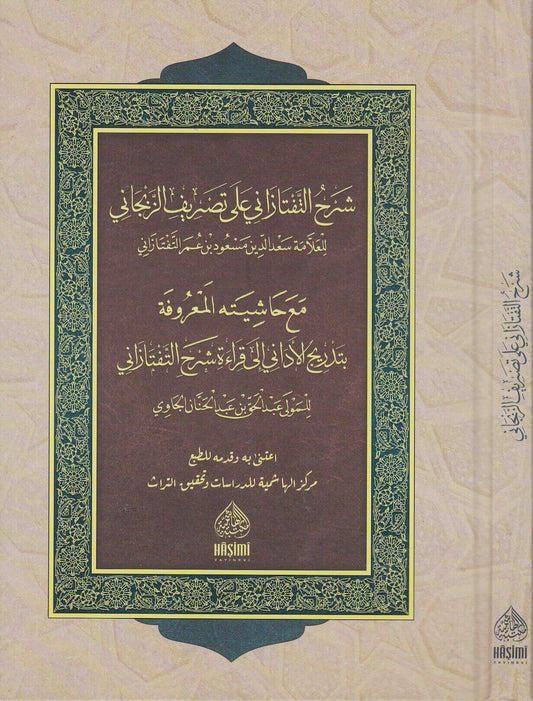 شَرْحُ التَّفْتَازَانِي عَلَى تَصْرِيفِ الزَّنْجَانِي
لِلعَلَّامَة سَعدِ الدِّين مَسْعُود بْن عُمَر التَّفْتَازَانِي
مَعَ حَاشِيَتِهِ المَعْرُوفَة
بِتَدْرِيجِ الأَدَانِي إِلَى قِرَاءَةِ شَرْحِ التَّفْتَازَانِي
لِلمَولَى عَبدِ الحَقِّ بْن عَبدِ الحَنَّان الجَاوِي
اعتنى به وقدمه للطبع
مركز الهاشمية للدراسات وتحقيق التراث
HÂŞİMİ
YAYINEVİ
شَرْحُ التَّفْتَازَانِي عَلَى تَصْرِيفِ الزَّنْجَانِي
HÂŞİMİ
YAYINEVİ